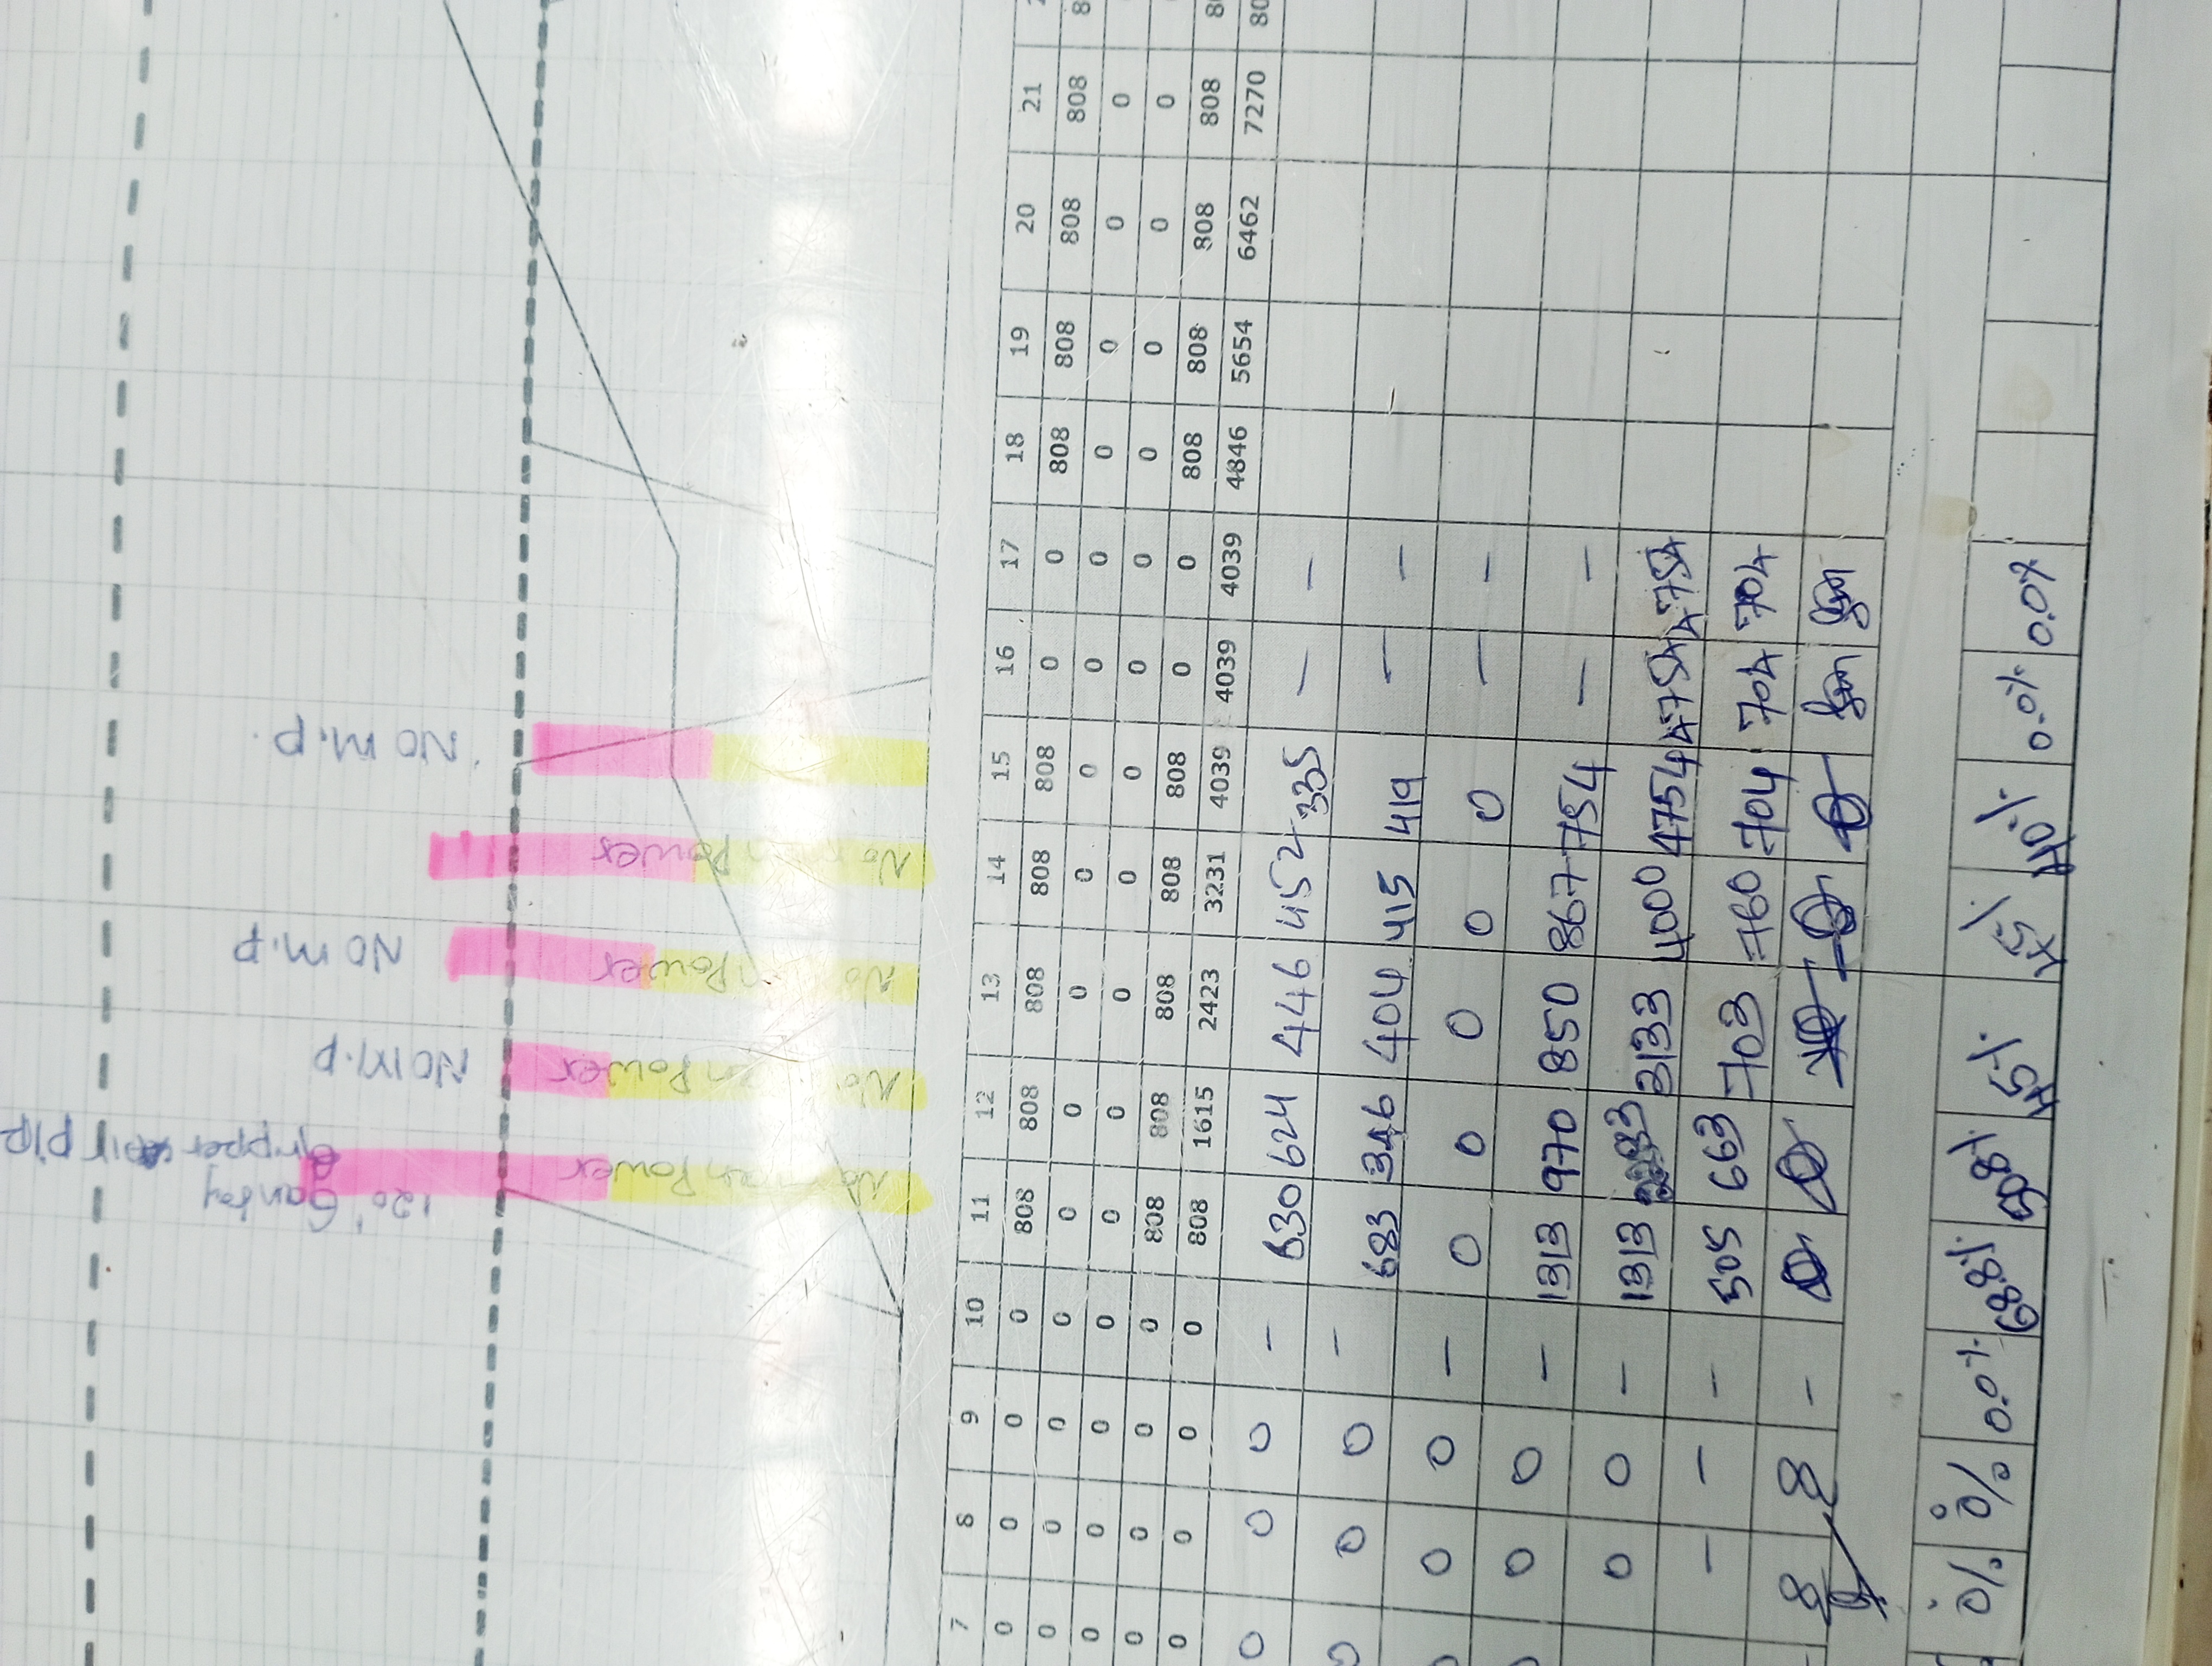 120' Gantry
Gripper air pip
NO M.P
NO M.P
NO M.P.
No man Power
No man Power
No man Power
No man Power
7 8 9 10 11 12 13 14 15 16 17 18 19 20 21
0 0 0 0 808 808 808 808 808 0 0 808 808 808 808 8
0 0 0 0 0 0 0 0 0 0 0 0 0 0 0
0 0 0 0 0 0 0 0 0 0 0 0 0 0 0
0 0 0 0 808 808 808 808 808 0 0 808 808 808 808 8
0 0 0 0 808 1615 2423 3231 4039 4039 4039 4846 5654 6462 7270 80
0 0 0 - 630 624 446 452 335 - -
0 0 0 - 683 346 404 415 419 - -
0 0 0 - 0 0 0 0 0 - -
0 0 0 - 1313 970 850 867 754 - -
0 0 - 1313 2283 3133 4000 4754 4754 4754
- - - 505 663 703 760 704 704 704
- 8 8 -
0% 0% 0.0% 68.8% 50.8% 45% 45% 40% 0.0% 0.0%